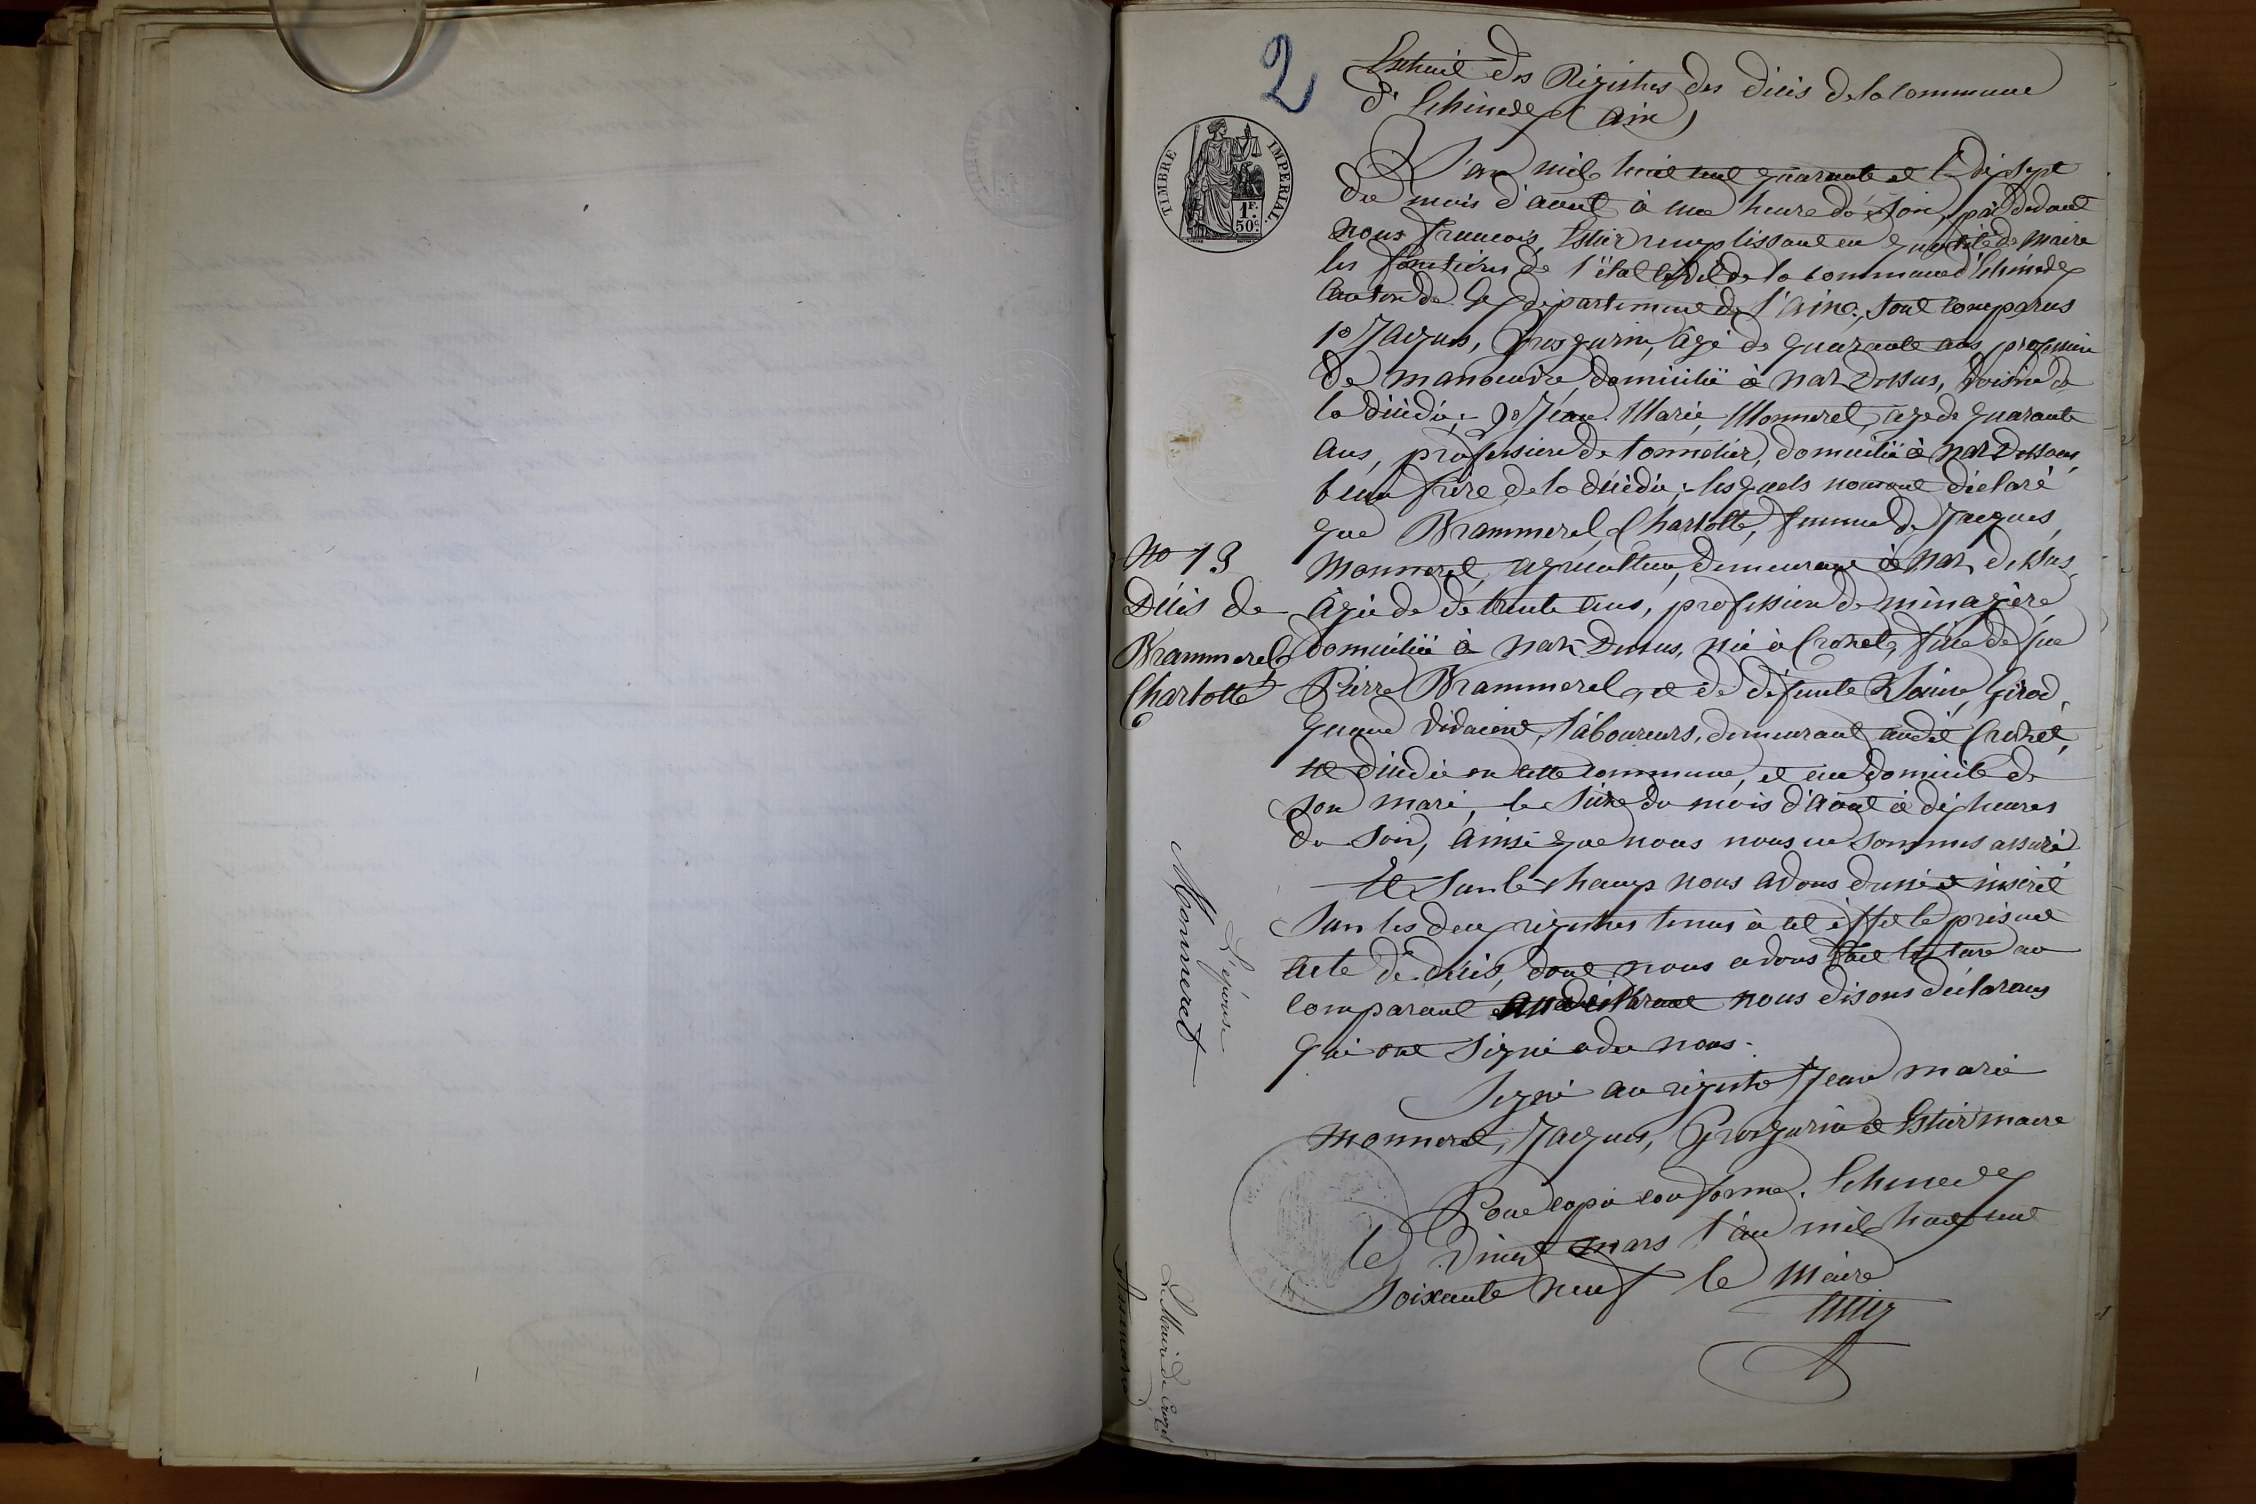 2
Extrait des Régistres des décis de la commune
d'Échenevex (ain)
TIMBRE IMPERIAL
1F.
50c
L'an mil huit cent quarante et le dix sept
du mois d'aout à une heure du soir, par devant
nous francois Estier remplissant en qualité de maire
les fonctions de l'état civil de la commune d'Echenevex
canton de Gex département de l'ain, sont comparus
1o Jacques, Grosgurin, âgé de quarante ans profession
de manoeuvre domicilié à naz Dessus, voisin de
la décédée; 2o Jean Marie, Monneret, age de quarante
ans, profession de tonnelier, domicilié à naz Dessous,
beau frère de la décédée; lesquels nous ont déclaré
que Brammerel, Charlotte, femme de Jacques,
Monneret, agriculteur, demeurant à naz dessus,
âgée de de trente ans, profession de ménagère
domiciliée à naz-Dessus, née à Crozet, fille de feu
Pierre Brammerel, et de défunte Girod,
quand vivaient, laboureurs, demeurant audit Crozet,
est décédée en cette commune, et au domicile de
son mari, le Seize du mois d'Aout à dix heures
du soir, ainsi que nous nous en sommes assuré
Et sur le champ nous avons dressé et inséré
sur les deux régistres tenus à cet effet le présent
acte de décis, dont nous avons fait lecture au
comparant nous disons déclarans
qui ont signé avec nous.
Signé au régistre Jean marie
monneret, Jacques, Grosgurin et Estier maire
Pour copie conforme. Echenevex
le Vingt mars l'an mil huit cent
soixante neuf le Maire
Estier
No 13
Décis de
Brammerel
Charlotte
L'épouse
Monneret
Le Maire de Crozet